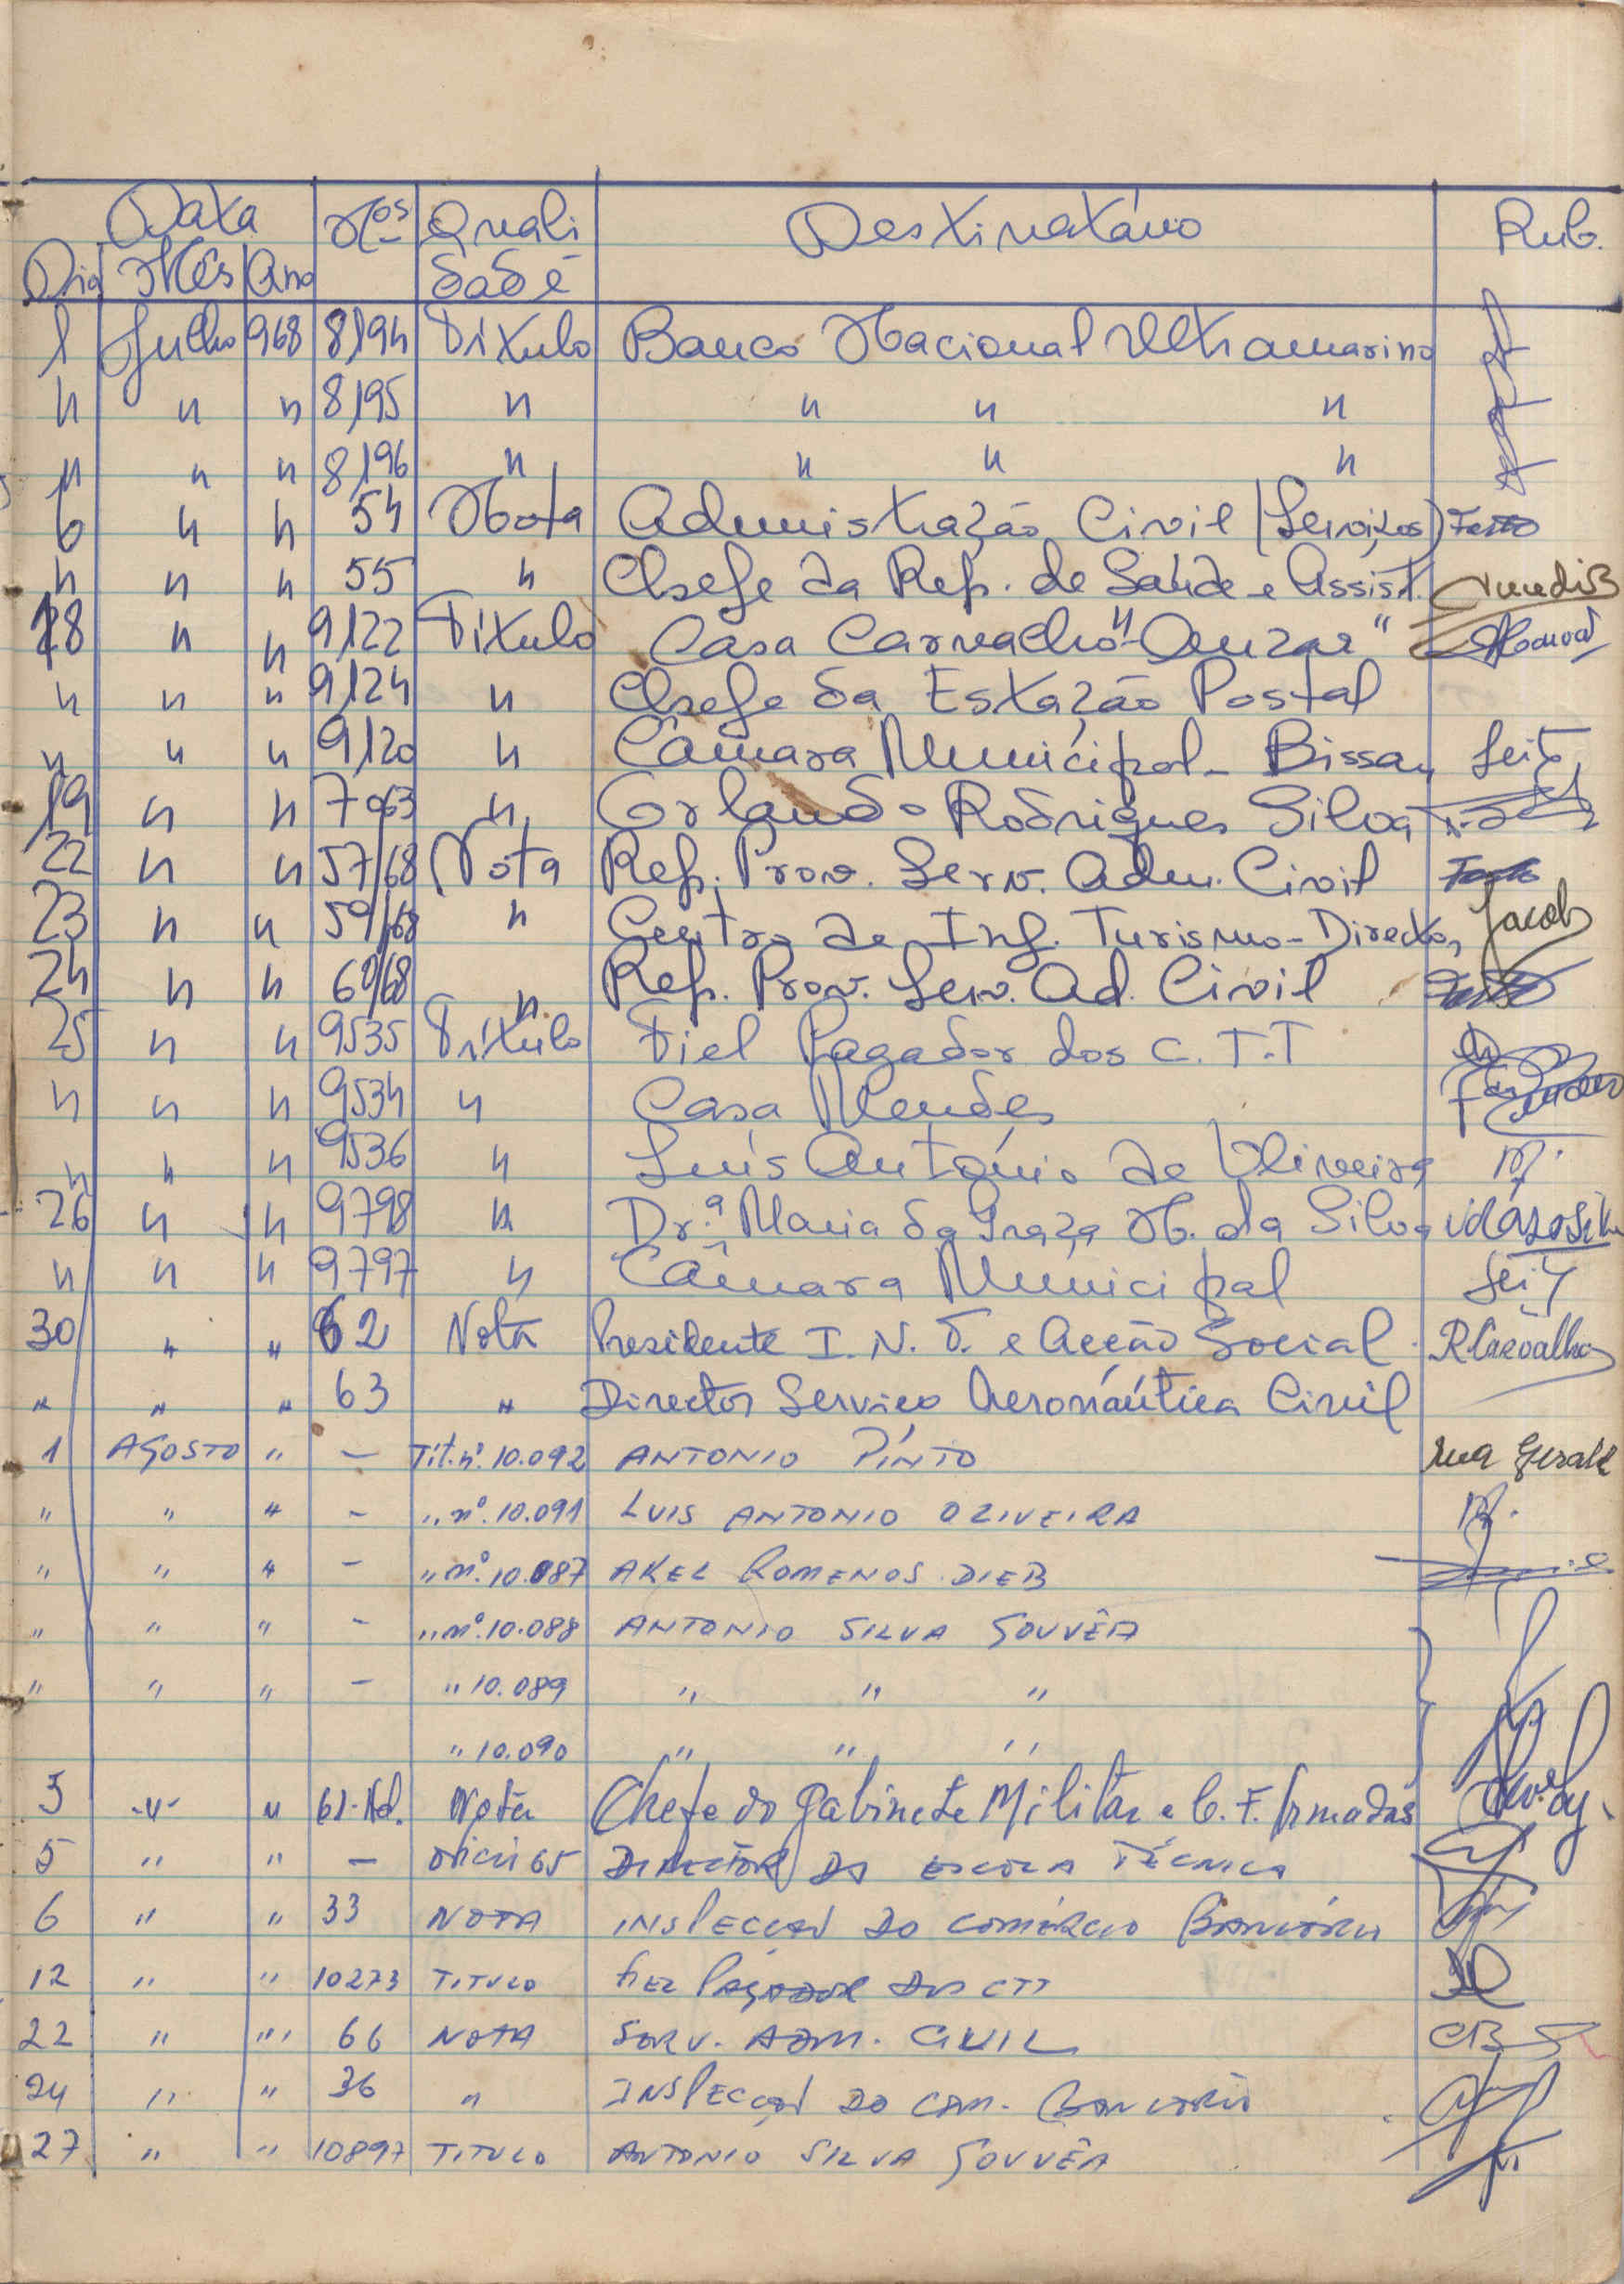 Data Nos Quali Destinatário Rub.
Dia Mês Ano dade
1 Julho 968 8194 Título Banco Nacional Ultramarino
" " " 8195 " " " "
" " " 8196 " " " "
6 " " 54 Nota Administração Civil (Serviços)
" " " 55 " Chefe da Rep. de Saúde e Assist.
18 " " 9122 Título Casa Carvalho "Ouzar"
" " " 9124 " Chefe da Estação Postal
" " " 9120 " Câmara Municipal - Bissau
19 " " 7063 " Orlando Rodrigues Silva
22 " " 57/68 Nota Rep. Prov. Serv. Adm. Civil
23 " " 59/68 " Centro de Inf. Turismo - Director Jacob
24 " " 60/68 " Rep. Prov. Serv. Ad. Civil
25 " " 9535 Título Fiel Pagador dos C.T.T
" " " 9534 " Casa Mendes
" " " 9536 " Luís António de Oliveira
26 " " 9798 " Dr.ª Maria da Graça N. da Silva
" " " 9797 " Câmara Municipal
30 " " 62 Nota Presidente I. N. T. e Acção Social RCarvalho
" " " 63 " Director Serviço Aeronáutica Civil
1 AGOSTO " - Tit. nº 10.092 ANTONIO PINTO
" " " - " nº. 10.091 LUIS ANTONIO OLIVEIRA
" " " - " nº. 10.087 AKEL ROMENOS DIEB
" " " - " nº. 10.088 ANTONIO SILVA GOUVÊA
" " " - " 10.089 " " "
" 10.090 " " "
3 " " 61- Nota Chefe do Gabinete Militar e C. F. Armadas
5 " " - 65 DIRECTOR DA ESCOLA TÉCNICA
6 " " 33 NOTA INSPECÇÃO DO COMÉRCIO BANCÁRIO
12 " " 10273 TITULO FIEL PAGADOR DOS CTT
22 " " 66 NOTA SERV. ADM. CIVIL
24 " " 36 " INSPECÇÃO DO COM. BANCÁRIO
27 " " 10897 TITULO ANTONIO SILVA GOUVÊA